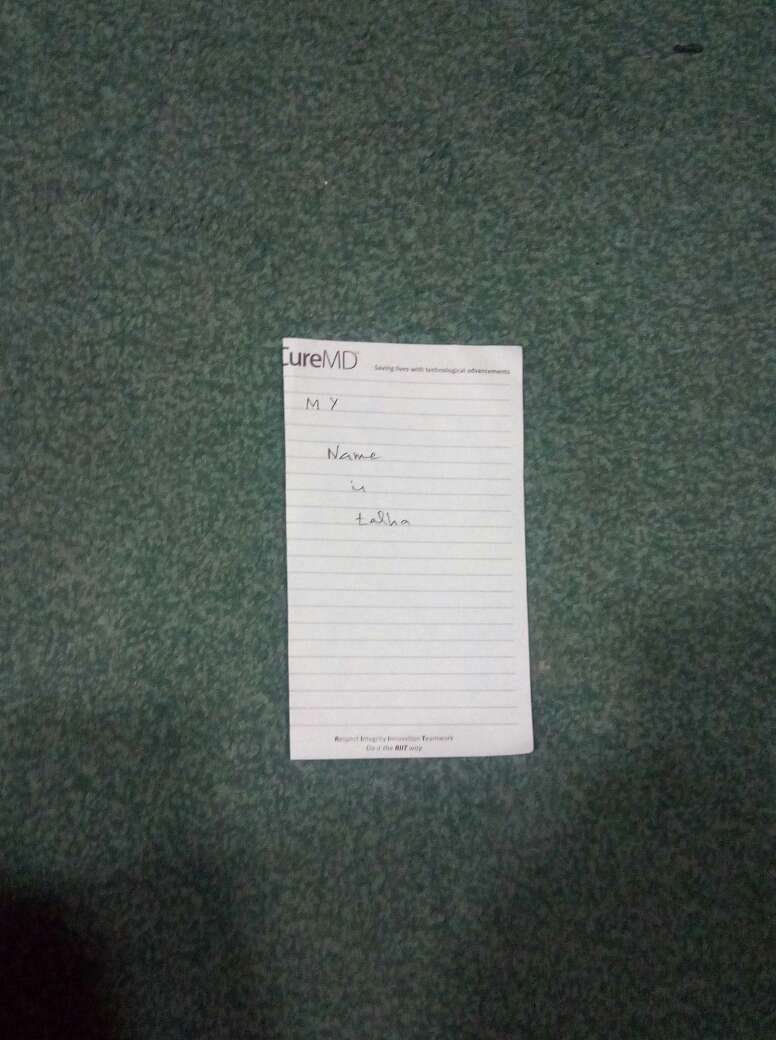 CureMD
Saving lives with technological advancements
MY
Name
is
talha
Respect Integrity Innovation Teamwork
Do it the RIIT way